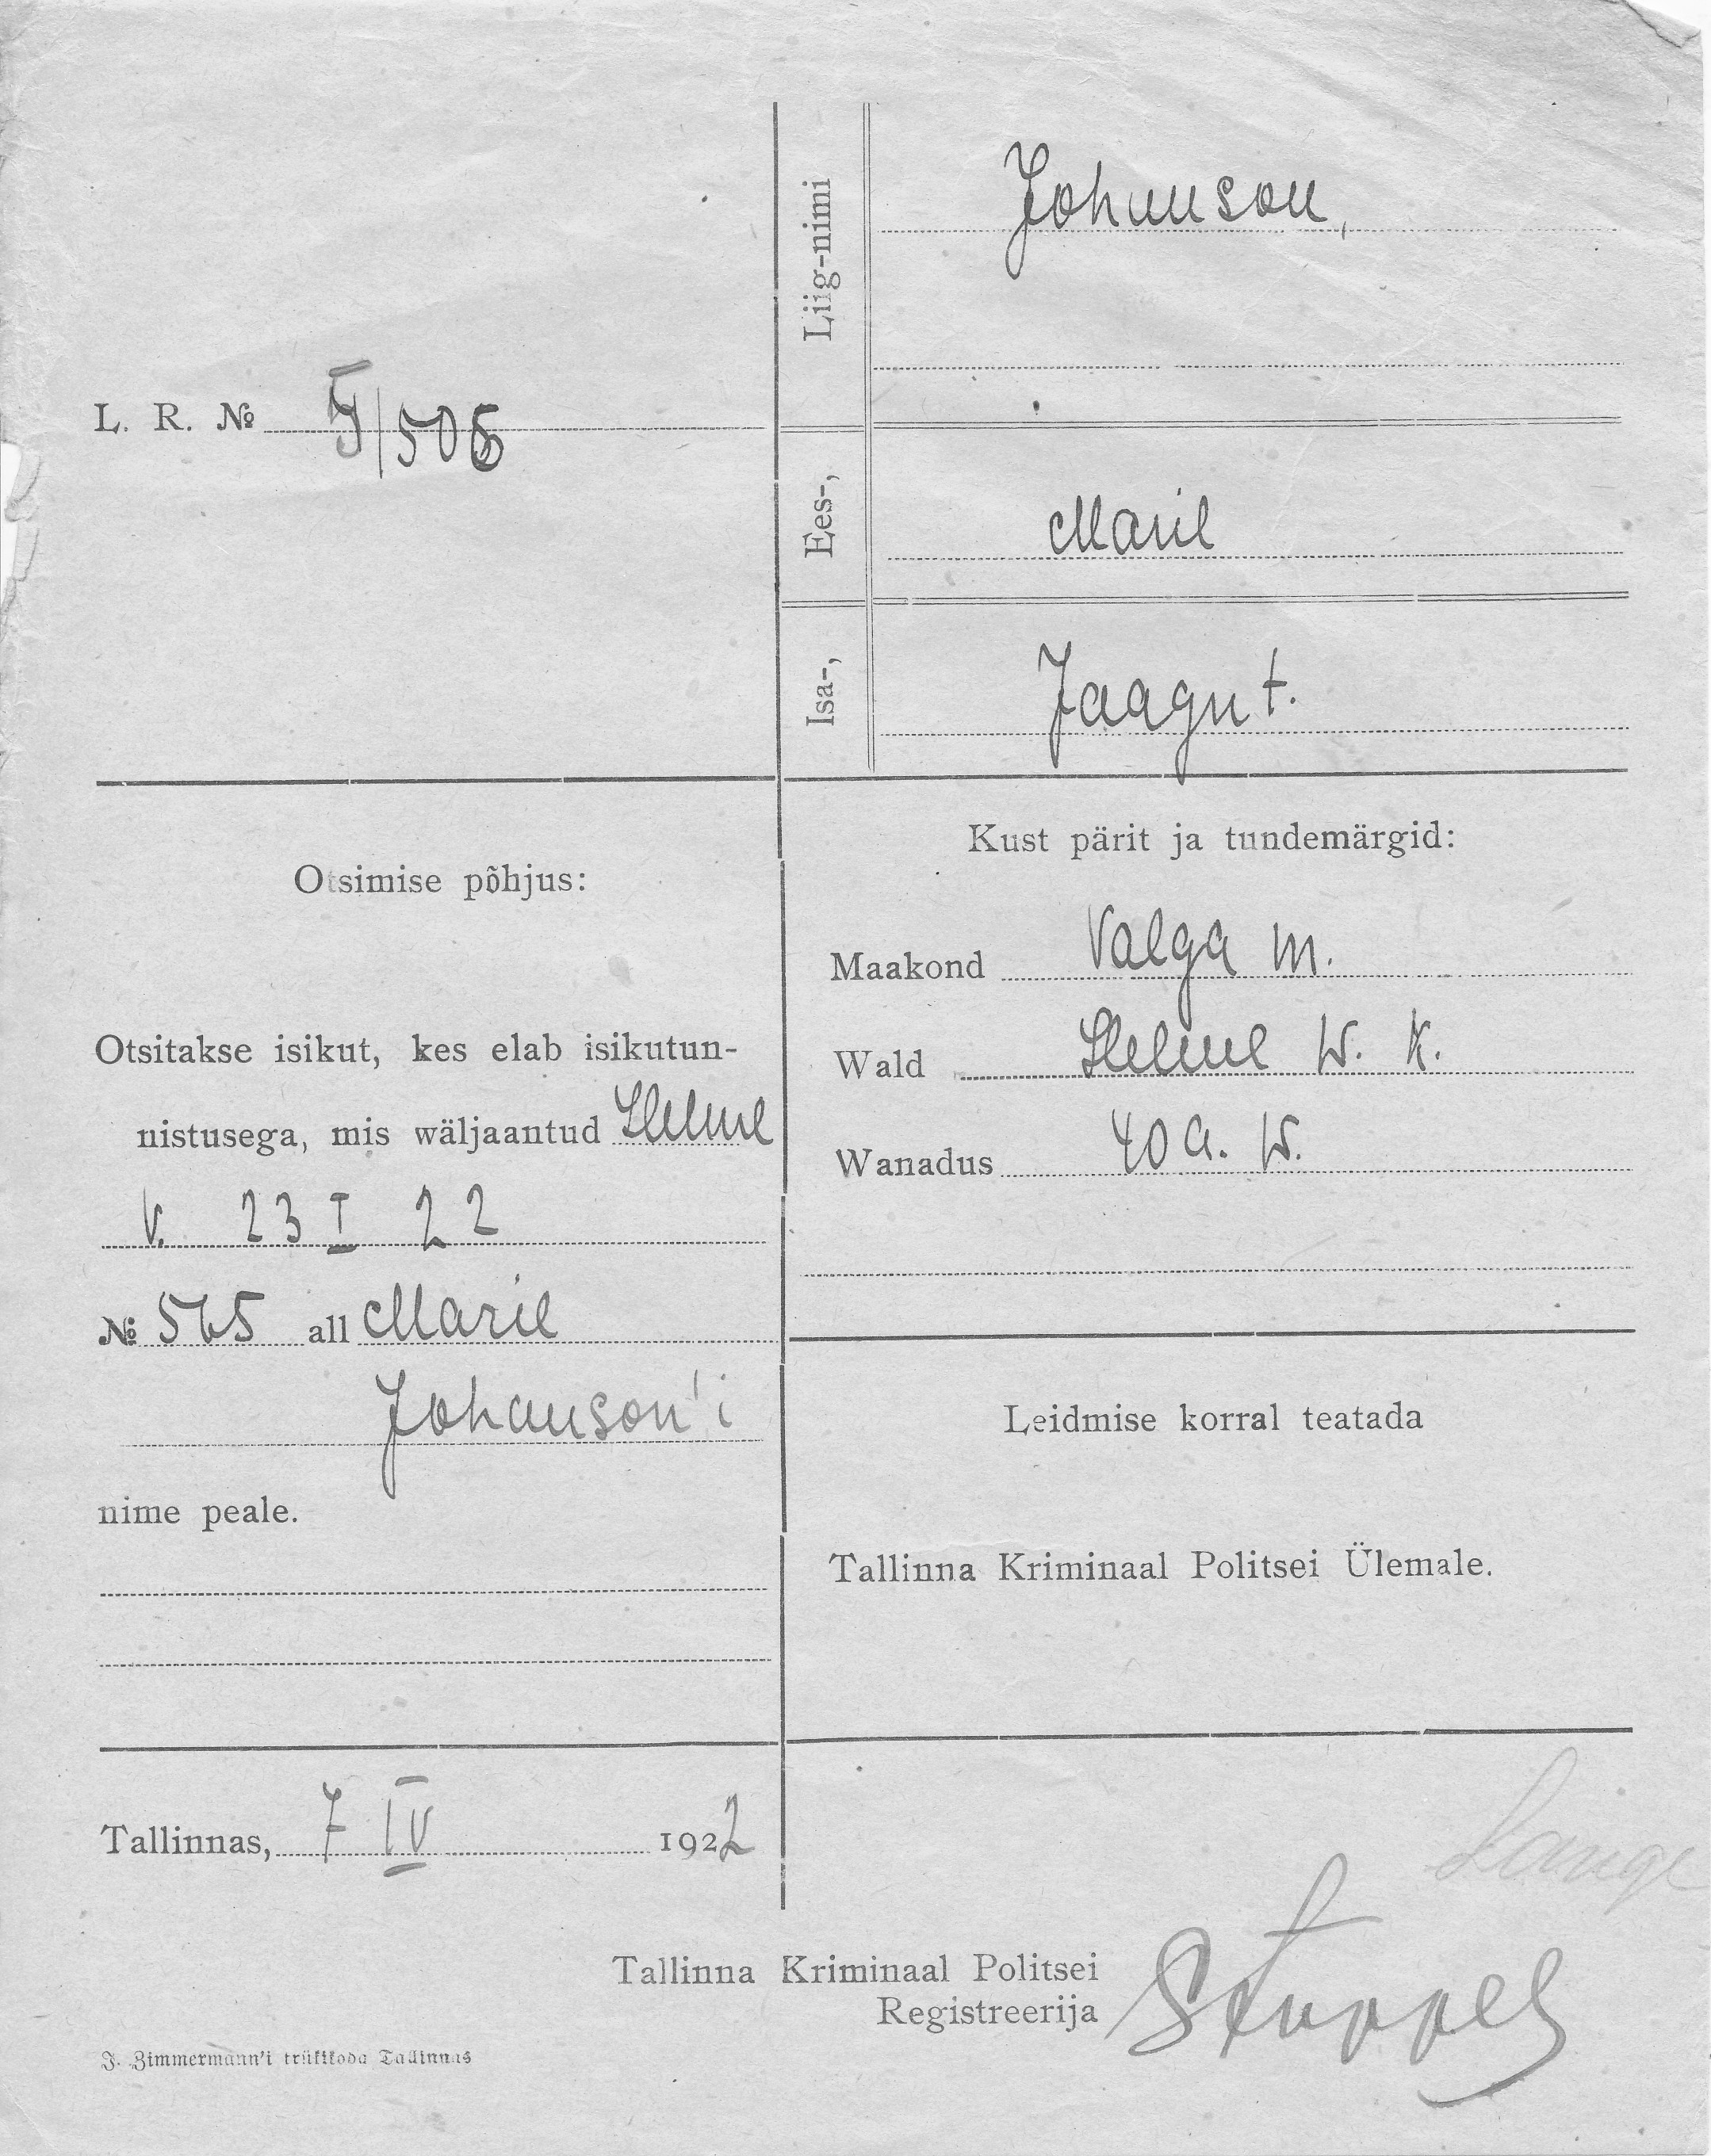 L. R. № J/506
Liig-nimi
Johanson,
Ees-,
Marie
Isa-,
Jaagu t.
Otsimise põhjus:
Otsitakse isikut, kes elab isikutun-
nistusega, mis wäljaantud Helme
v. 23 I 22
№ 565 all Marie
Johanson'i
nime peale.
Kust pärit ja tundemärgid:
Maakond Valga m.
Wald Helme W. K.
Wanadus 40 a. W.
Leidmise korral teatada
Tallinna Kriminaal Politsei Ülemale.
Tallinnas, 7 IV 1922
Lange
Tallinna Kriminaal Politsei
Registreerija
J. Zimmermann'i trükikoda Tallinnas